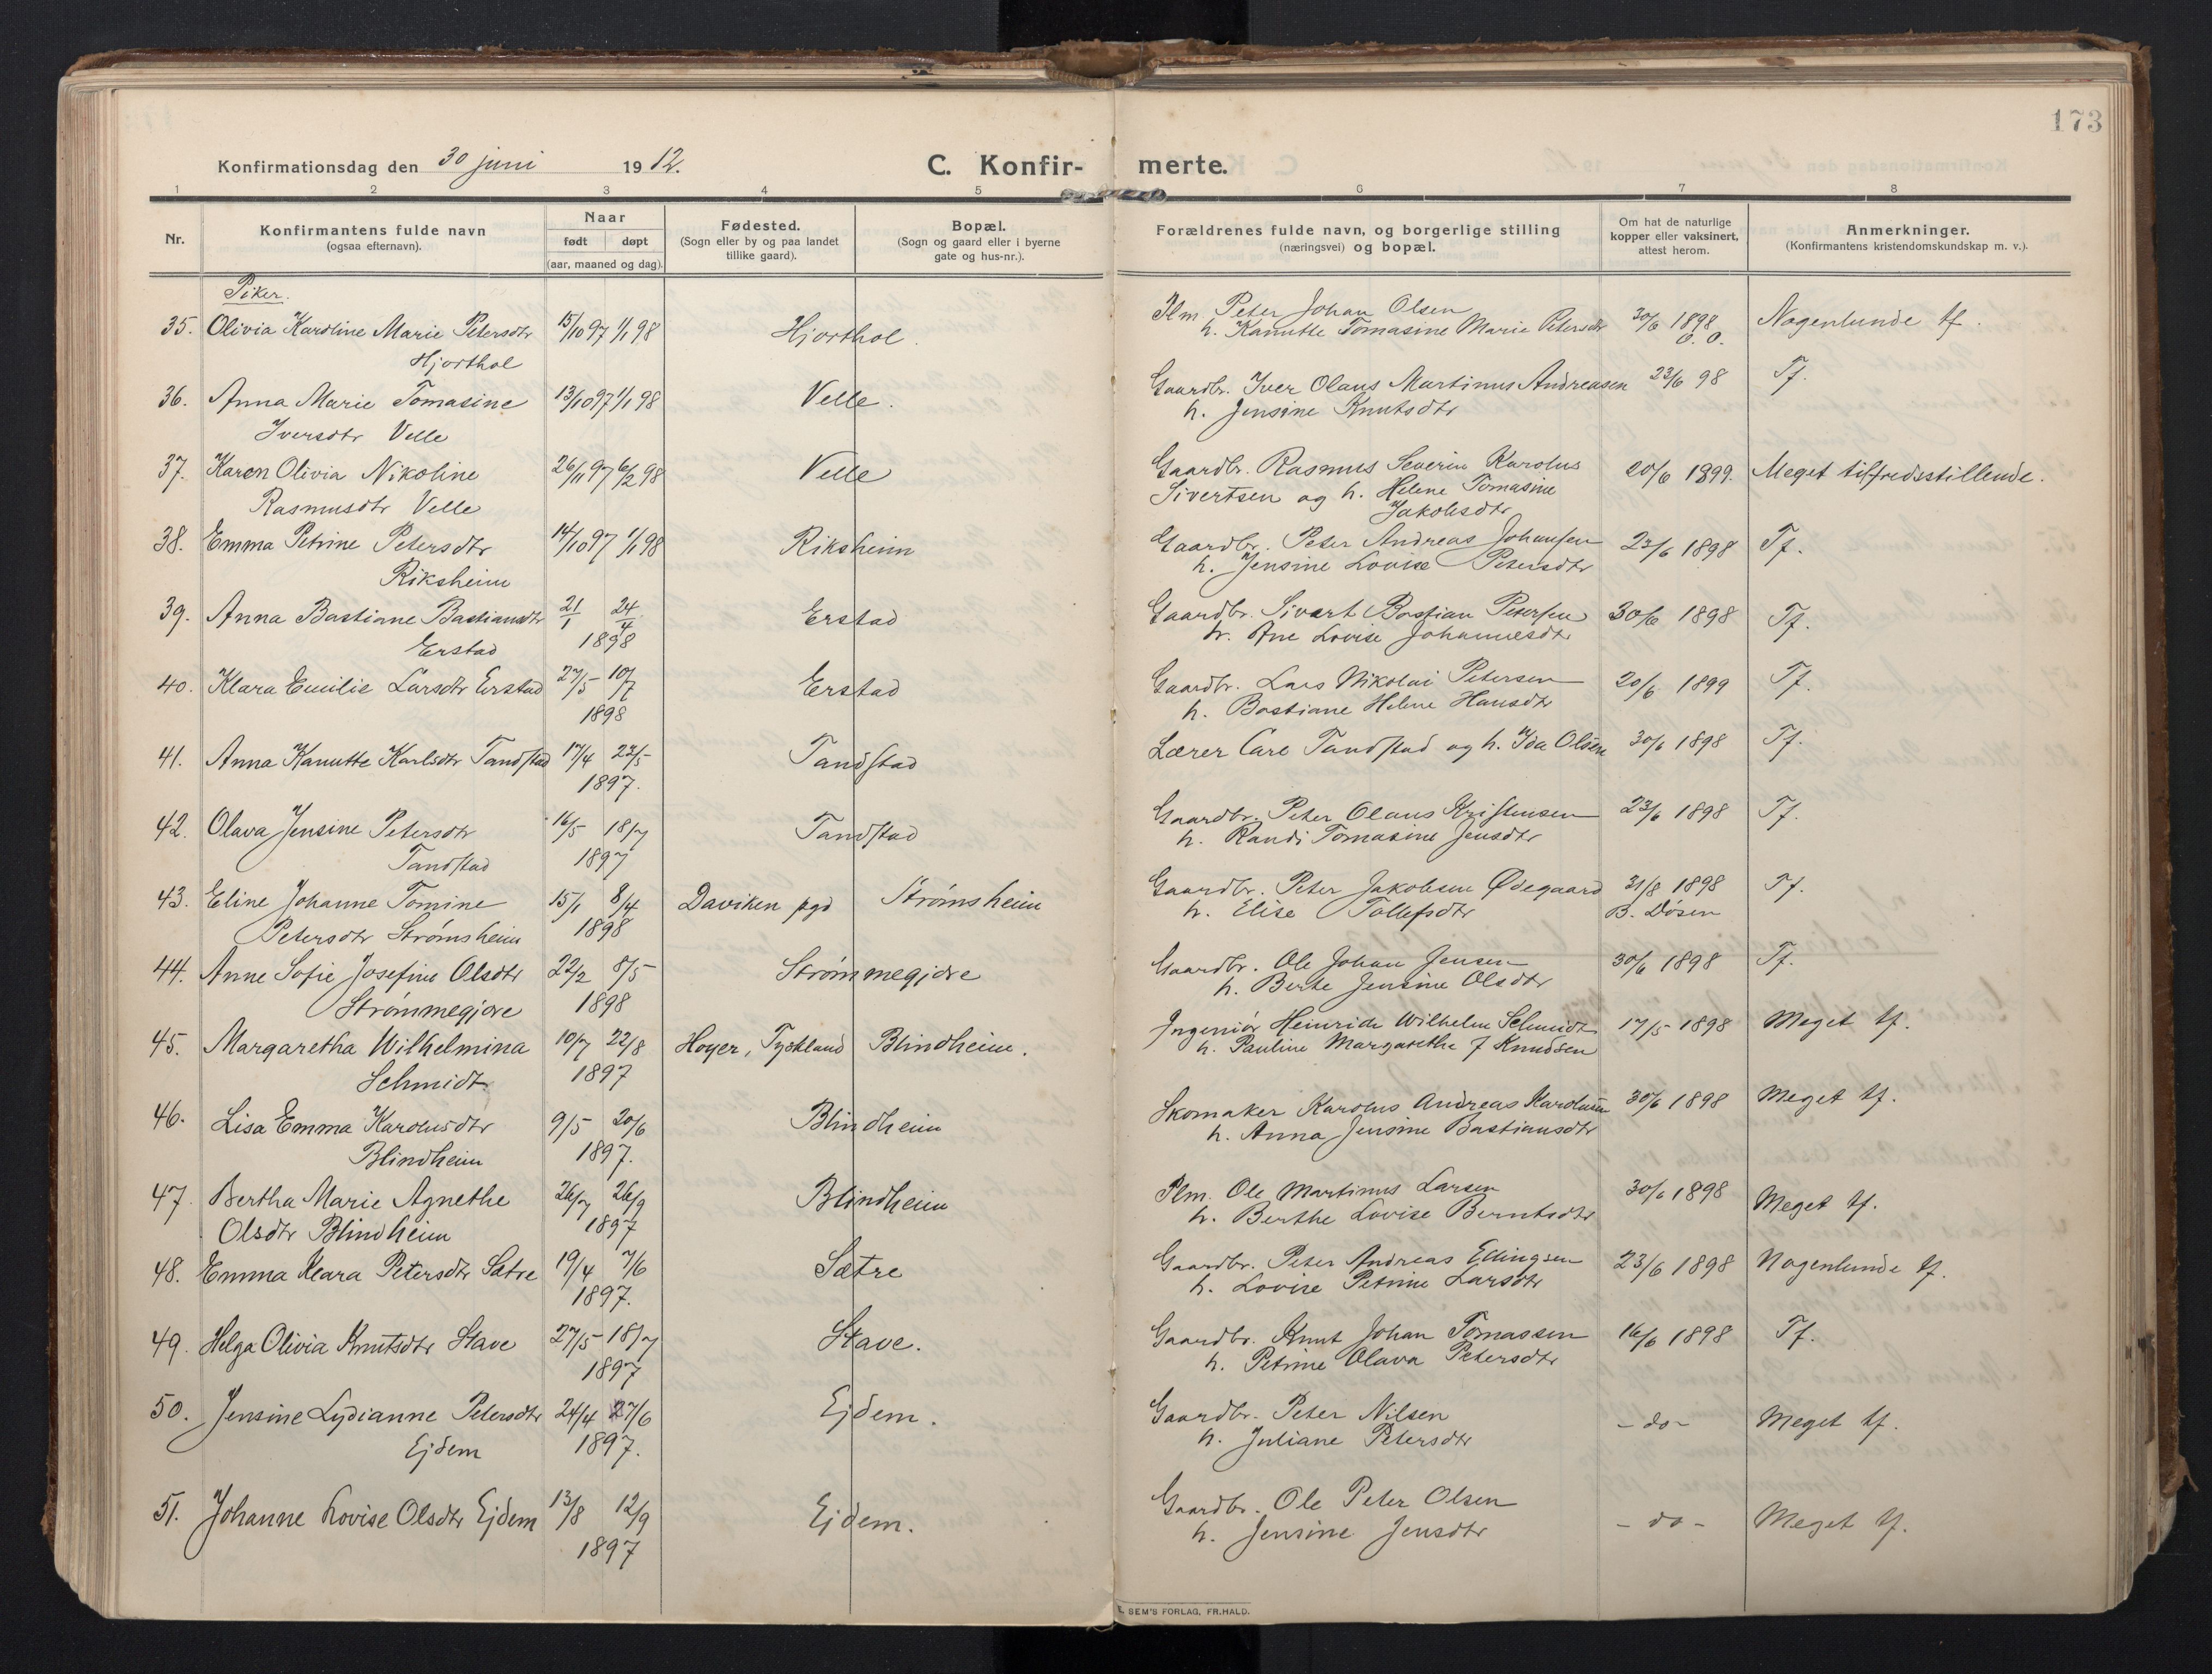 173
Konfirmationsdag den 30 juni 1912.
C. Konfirmerte.
1 2 3 4 5 6 7 8
Nr.
Konfirmantens fulde navn
(ogsaa efternavn).
Naar
født døpt
(aar, maaned og dag).
Fødested.
(Sogn eller by og paa landet
tillike gaard).
Bopæl.
(Sogn og gaard eller i byerne
gate og hus-nr.).
Forældrenes fulde navn, og borgerlige stilling
(næringsvei) og bopæl.
Om hat de naturlige
kopper eller vaksinert,
attest herom.
Anmerkninger.
(Konfirmantens kristendomskundskap m. v.).
Piker.
35. Olivia Karoline Marie Petersdtr 15/10 97 1/1 98 Hjorthol. Plm. Peter Johan Olsen 30/6 1898 Nogenlunde tf.
Hjorthol h. Kanutte Tomasine Marie Petersdtr O. O.
36. Anna Marie Tomasine 13/10 97 1/1 98 Velle. Gaardbr. Iver Olaus Martinus Andreasen 23/6 98 Tf.
Iversdtr Velle h. Jensine Knutsdtr
37. Karen Olivia Nikoline 26/11 97 6/2 98 Velle Gaardbr. Rasmus Severin Karolus 20/6 1899. Meget tilfredsstillende.
Rasmusdtr Velle Sivertsen og h. Helene Tomasine
Jakobsdtr
38. Emma Petrine Petersdtr 14/10 97 1/1 98 Riksheim Gaardbr. Peter Andreas Johansen 23/6 1898 Tf.
Riksheim h. Jensine Lovise Petersdtr
39. Anna Bastiane Bastiansdtr 21/1 24/4 Erstad Gaardbr. Sivert Bastian Petersen 30/6 1898 Tf.
Erstad 1898 h. Ane Lovise Johannesdtr
40. Klara Emilie Larsdtr Erstad 27/5 10/7 Erstad Gaardbr. Lars Nikolai Petersen 20/6 1899 Tf.
1898 h. Bastiane Helene Hansdtr
41. Anna Kanutte Karlsdtr Tandstad 17/4 23/5 Tandstad Lærer Carl Tandstad og h. Ida Olsen 30/6 1898 Tf.
1897.
42. Olava Jensine Petersdtr 16/5 18/7 Tandstad Gaardbr. Peter Olaus Kristensen 23/6 1898 Tf.
Tandstad 1897 h. Randi Tomasine Jensdtr
43. Eline Johanne Tomine 15/1 8/4 Daviken pgd Strømsheim Gaardbr. Peter Jakobsen Ødegaard 31/8 1898 Tf.
Petersdtr Strømsheim 1898 h. Elise Tollefsdtr B. Døsen
44. Anne Sofie Josefine Olsdtr 22/2 8/5 Strømmegjære Gaardbr. Ole Johan Jensen 30/6 1898 Tf.
Strømmegjære 1898 h. Berte Jensine Olsdtr
45. Margaretha Wilhelmina 10/7 22/8 Hoyer, Tyskland Blindheim. Ingeniør Heinrich Wilhelm Schmidt 17/5 1898 Meget tf.
Schmidt 1897 h. Pauline Margarethe f Knudsen
46. Lisa Emma Karolusdtr 9/5 20/6 Blindheim Skomaker Karolus Andreas Karolusen 30/6 1898 Meget tf.
Blindheim 1897. h. Anna Jensine Bastiansdtr
47. Bertha Marie Agnethe 26/7 26/9 Blindheim Plm. Ole Martinus Larsen 30/6 1898 Meget tf.
Olsdtr Blindheim 1897 h. Berthe Lovise Berntsdtr
48. Emma Klara Petersdtr Sætre 19/4 7/6 Sætre Gaardbr. Peter Andreas Ellingsen 23/6 1898 Nogenlunde tf.
1897. h. Lovise Petrine Larsdtr
49. Helga Olivia Knutsdtr Stave 27/5 18/7 Stave. Gaardbr. Knut Johan Tomassen 16/6 1898 Tf.
1897 h. Petrine Olava Petersdtr
50. Jensine Lydianne Petersdtr 24/4 27/6 Ejdem. Gaardbr. Peter Nilsen - do - Meget tf.
Ejdem 1897. h. Juliane Petersdtr
51. Johanne Lovise Olsdtr Ejdem 13/8 12/9 Ejdem. Gaardbr. Ole Peter Olsen - do - Meget tf.
1897 h. Jensine Jensdtr
SEM'S FORLAG, FR.HALD.